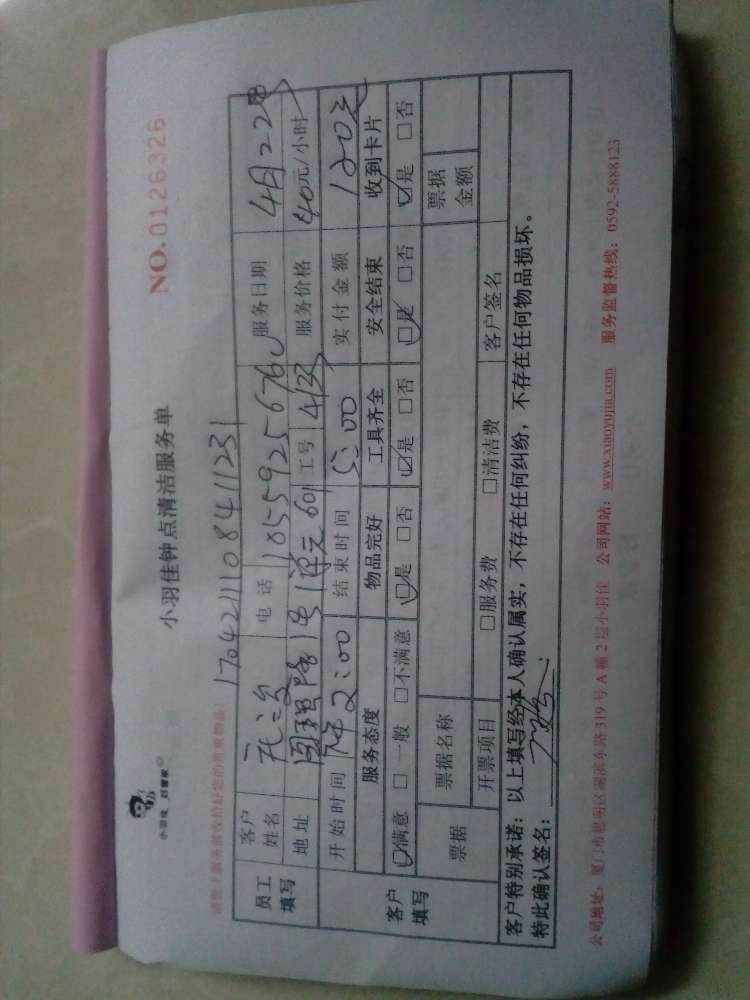 小羽佳 好管家
小羽佳钟点清洁服务单
NO.0126326
170421110841231
员工填写
客户姓名
电话 1855925676
服务日期 4月22日
地址 1号 单元 601
工号 4133
服务价格 40元/小时
开始时间 2:00
结束时间 5:00
实付金额 120元
客户填写
服务态度 物品完好 工具齐全 安全结束 收到卡片
☑满意 □一般 □不满意 ☑是 □否 ☑是 □否 ☑是 □否 ☑是 □否
票据 票据名称 票据金额
开票项目 □服务费 □清洁费 客户签名
客户特别承诺：以上填写经本人确认属实，不存在任何纠纷，不存在任何物品损坏。
特此确认签名：
公司地址：厦门市思明区湖滨东路 319 号 A 幢 2 层小羽佳 公司网站：www.xiaoyujia.com 服务监督热线：0592-5888123